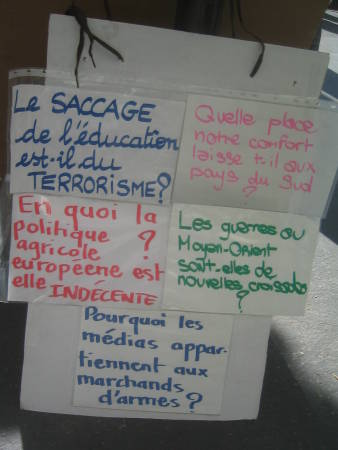 Le SACCAGE
de l'éducation
est-il du
TERRORISME?
Quelle place
notre confort
laisse t-il aux
pays du Sud
?
En quoi la
politique ?
agricole
européene est
elle INDÉCENTE
Les guerres au
Moyen-Orient
sont-elles de
nouvelles croisades
?
Pourquoi les
médias appar-
tiennent aux
marchands
d'armes ?